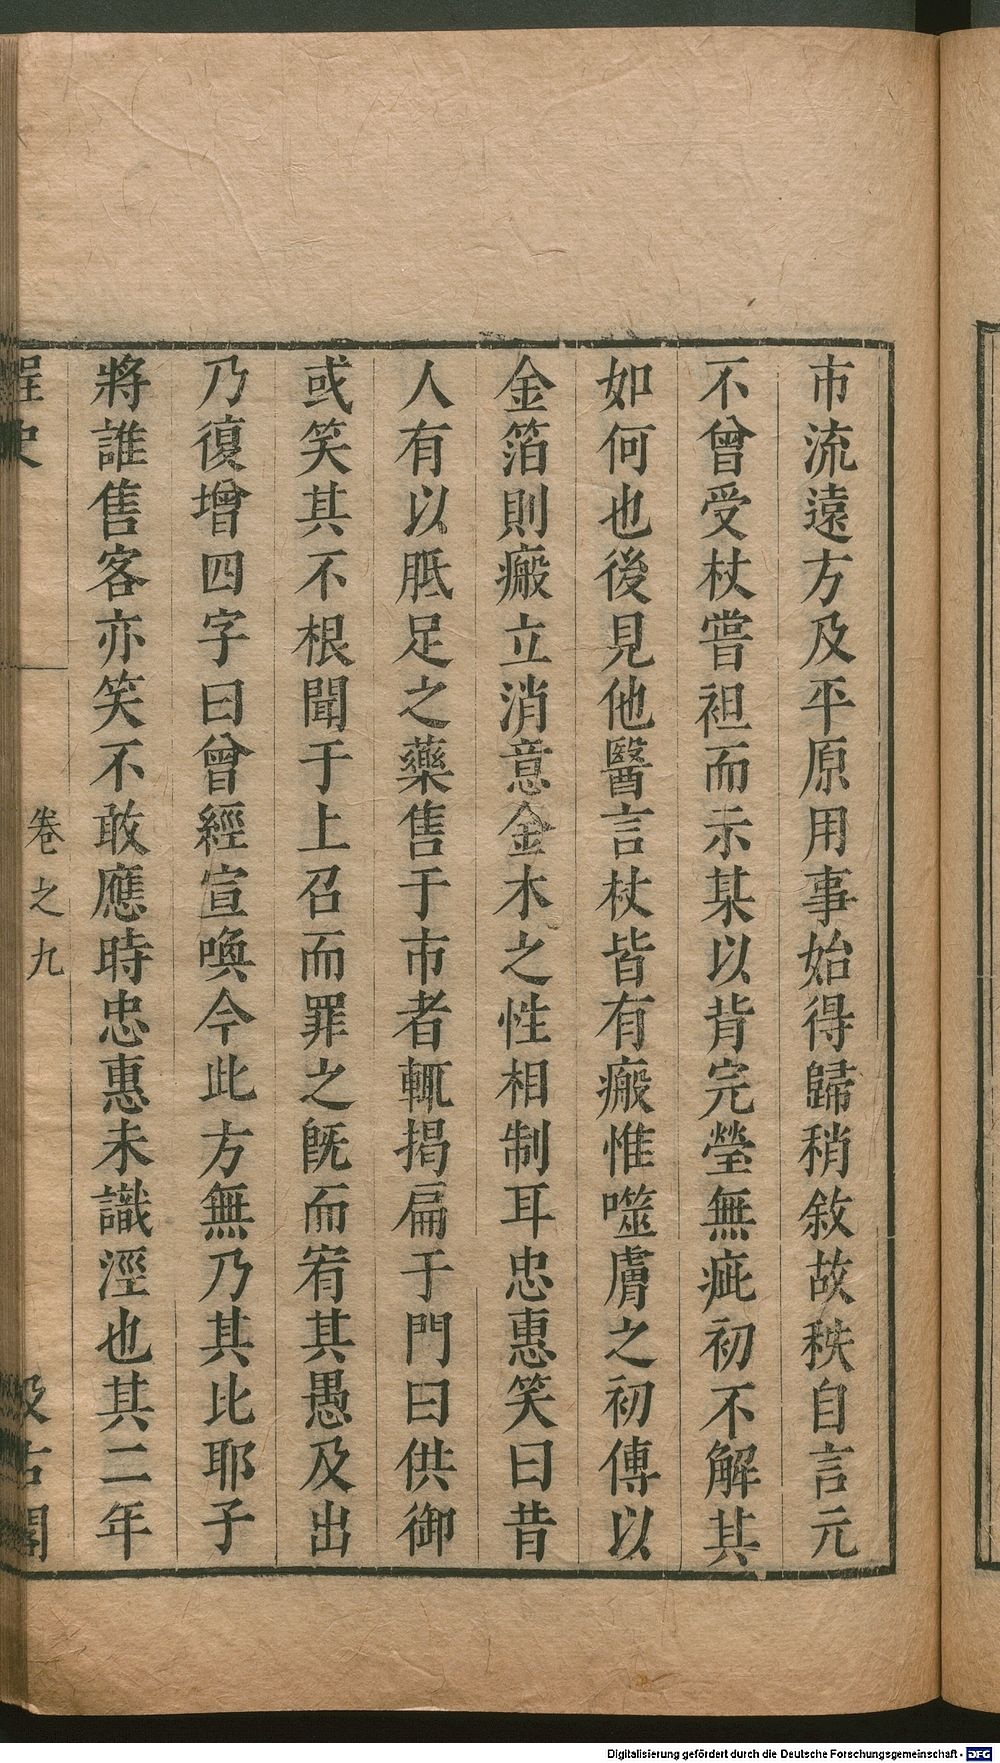 市流遠方及平原用事始得歸稍敘故秩自言元
不曾受杖嘗袒而示某以背完瑩無疵初不解其
如何也後見他醫言杖皆有瘢惟噬膚之初傅以
金箔則瘢立消意金木之性相制耳忠惠笑曰昔
人有以胝足之藥售于市者輒揭扁于門曰供御
或笑其不根聞于上召而罪之旣而宥其愚及出
乃復增四字曰曾經宣喚今此方無乃其比耶子
將誰售客亦笑不敢應時忠惠未識涇也其二年
桯史
卷之九
汲古閣
Digitalisierung gefördert durch die Deutsche Forschungsgemeinschaft - DFG